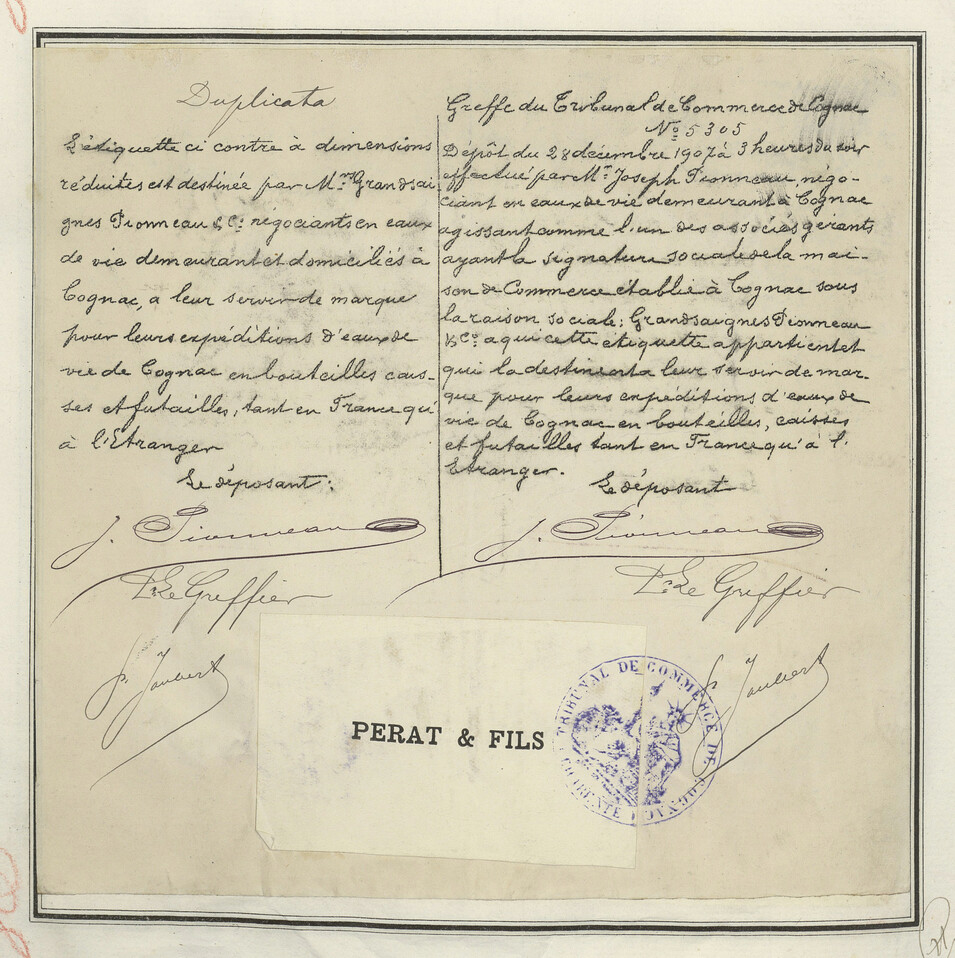 Duplicata
L'étiquette ci contre à dimensions
réduites est destinée par Mrs Grandsai
gnes Pionneau & Cie négociants en eaux
de vie demeurant et domiciliés à
Cognac, a leur servir de marque
pour leurs expéditions d'eaux de
vie de Cognac en bouteilles cais-
ses et futailles, tant en France qu'
à l'Etranger
Le déposant:
J. Pionneau
Pr Le Greffier
Joubert
Greffe du Tribunal de Commerce de Cognac
No 5305
Dépôt du 28 décembre 1907 à 3 heures du soir
effectué par Mr Joseph Pionneau, négo-
ciant en eaux de vie demeurant à Cognac
agissant comme l'un des associés gérants
ayant la signature sociale de la mai-
son de Commerce établie à Cognac sous
la raison sociale: Grandsaignes Pionneau
& Co a qui cette etiquette appartient et
qui la destinent a leur servir de mar-
que pour leurs expéditions d'eaux de
vie de Cognac en bouteilles, caisses
et futailles tant en France qu'à l'
Etranger.
Le déposant
J. Pionneau
Pr Le Greffier
Joubert
PERAT & FILS
TRIBUNAL DE COMMERCE DE COGNAC
CHARENTE